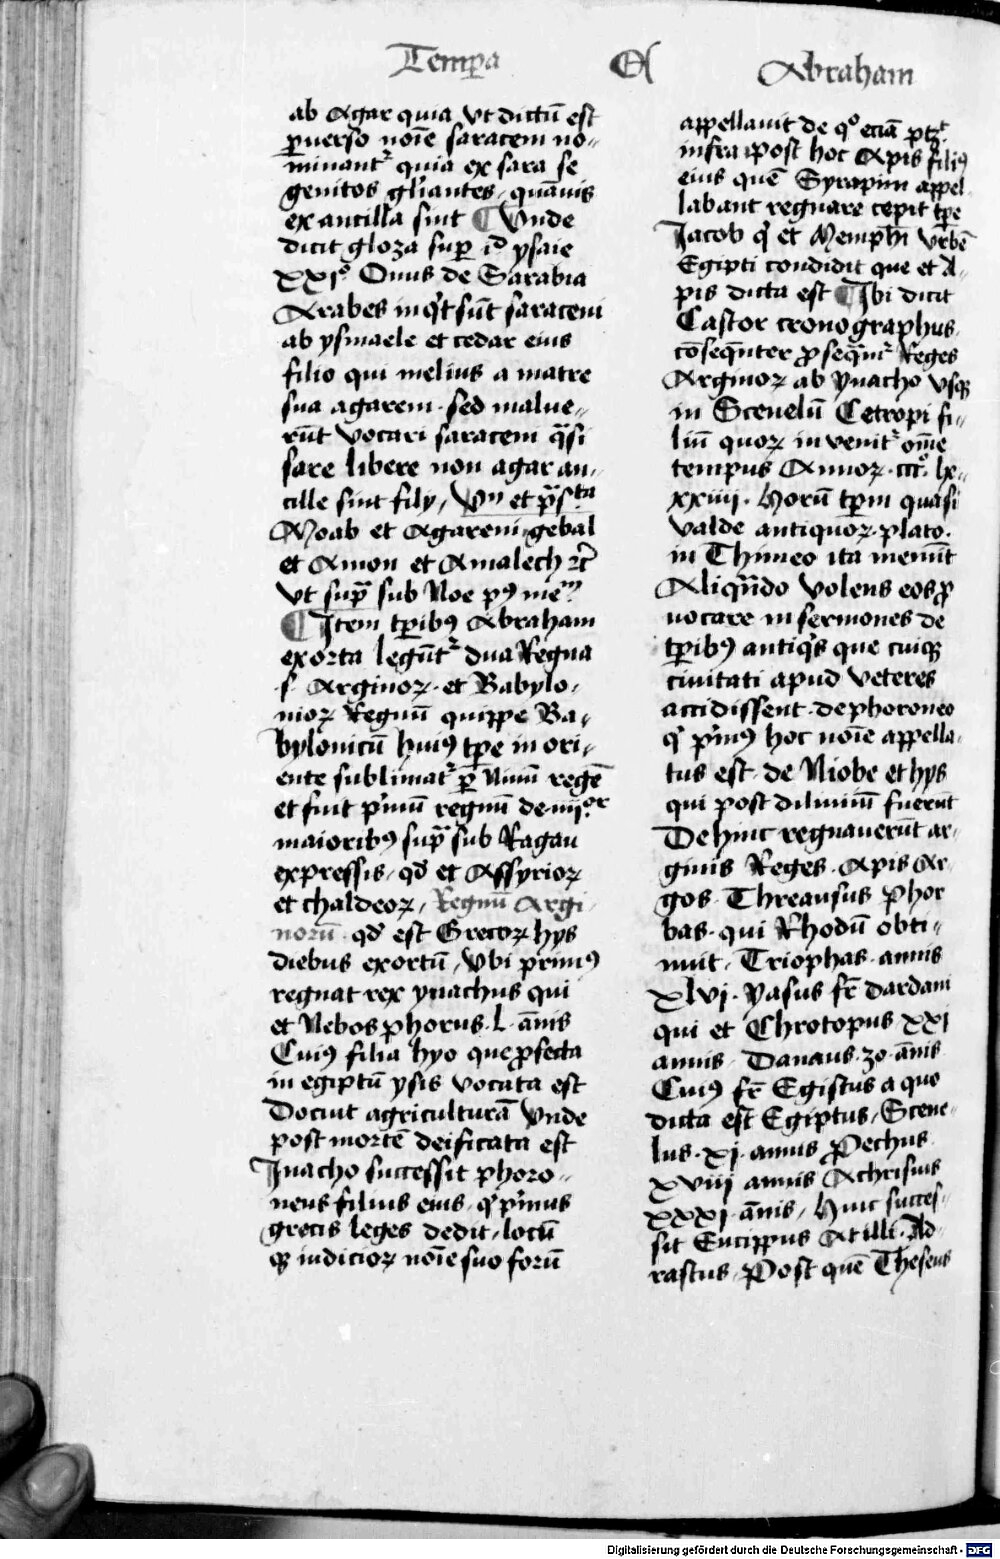 Temp̱a A Abraham
ab Agar quia vt dictū est
ꝑuerso noīe saraceni no-
minantᷣ quia ex sara se
genitos gl̄iantes, quāuis
ex ancilla sint ¶ Vnde
dicit gloza suꝑ id ysaie
xxjº Onus de Sarabia
Arabes inqͥt sūt saraceni
ab ysmaele et cedar eius
filio qui melius a matre
sua agareni · sed malue-
rūt vocari saraceni q̄si
sare libere non agar an-
cille sint filij, Vn̄ et p̄s.ta
Moab et Agareni, gebal
et Amon et Amalech ⁊c̄
vt sup̄ sub Noe
¶ Item tꝑibꝰ Abraham
exorta legūtᷣ dua Regna
·s· Arginoꝝ · et Babylo-
nioꝝ Regnū quippe Ba-
bylonicū huiꝰ tꝑe in ori-
ente sublimatᷣ ꝑ Ninū regē
et fuit pͥmū regnū de iiij.or
maioribꝰ sup̄ sub Ragau
expressis, qd̄ et Assyrioꝝ
et chaldeoꝝ, Regnū Argi-
norū · qd̄ est Grecoꝝ hys
diebus exortū, Vbi primꝰ
regnat rex ynachus qui
et Nebos phorus · L · ānis
Cuiꝰ filia hyo que ꝓfecta
in egiptū ysis vocata est
Docuit agriculturā Vnde
post mortē deificata est
Inacho successit phoro-
neus filius eius · qͥ pͥmus
grecis leges dedit, locū
qꝫ iudicioꝝ noīe suo forū
appellauit de qº eciā
infra Post hoc Apis filiꝰ
eius quē Syrapim appel-
labant regnare cepit tꝑe
Jacob qͥ et Memphī vrbē
Egipti condidit que et A-
pis dicta est ¶ Ibi dicit
Castor cronographus
cōseqn̄ter ꝓseqn̄tᷣ Reges
Arginoꝝ ab ynacho vsqꝫ
in Scenelū Cetropi fi-
liū quoꝝ in venitᷣ om̄e
tempus Annoꝝ · ccc.º lx-
xxiiii · Horū tꝑm quasi
valde antiquoꝝ · plato ·
in Thimeo ita meminit
Aliqn̄do volens eos ꝓ
uocare in sermones de
tꝑibꝰ antiqͥs que cuiqꝫ
ciuitati apud veteres
accidissent · de phoroneo
qͥ pͥmꝰ hoc noīe appella-
tus est · de Niobe et hys
qui post diluuiū fuerūt
Dehinc regnauerūt ar-
giuis Reges · Apis Ar-
gos · Threausus Phor
bas · qui Rhodū obti-
nuit, Triophas · annis
xlvj · Yasus fr̄ dardani
qui et Chrotopus xxj
annis · Danaus · 30 · ānis
Cuiꝰ fr̄ Egistus a quo
dicta est Egiptus, Scene-
lus · xj · annis Pechus
xviij annis Achrisius
xxxj · ānis, Huic succes-
sit Eucippus Atilli · Ad-
rastus, Post quē Theseus
Digitalisierung gefördert durch die Deutsche Forschungsgemeinschaft - DFG